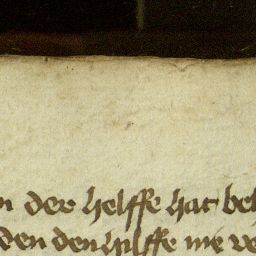 n der helffe hat be
den den hilffe me ve